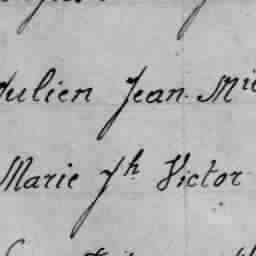 Julien Jean Mic
Marie Jh Victor